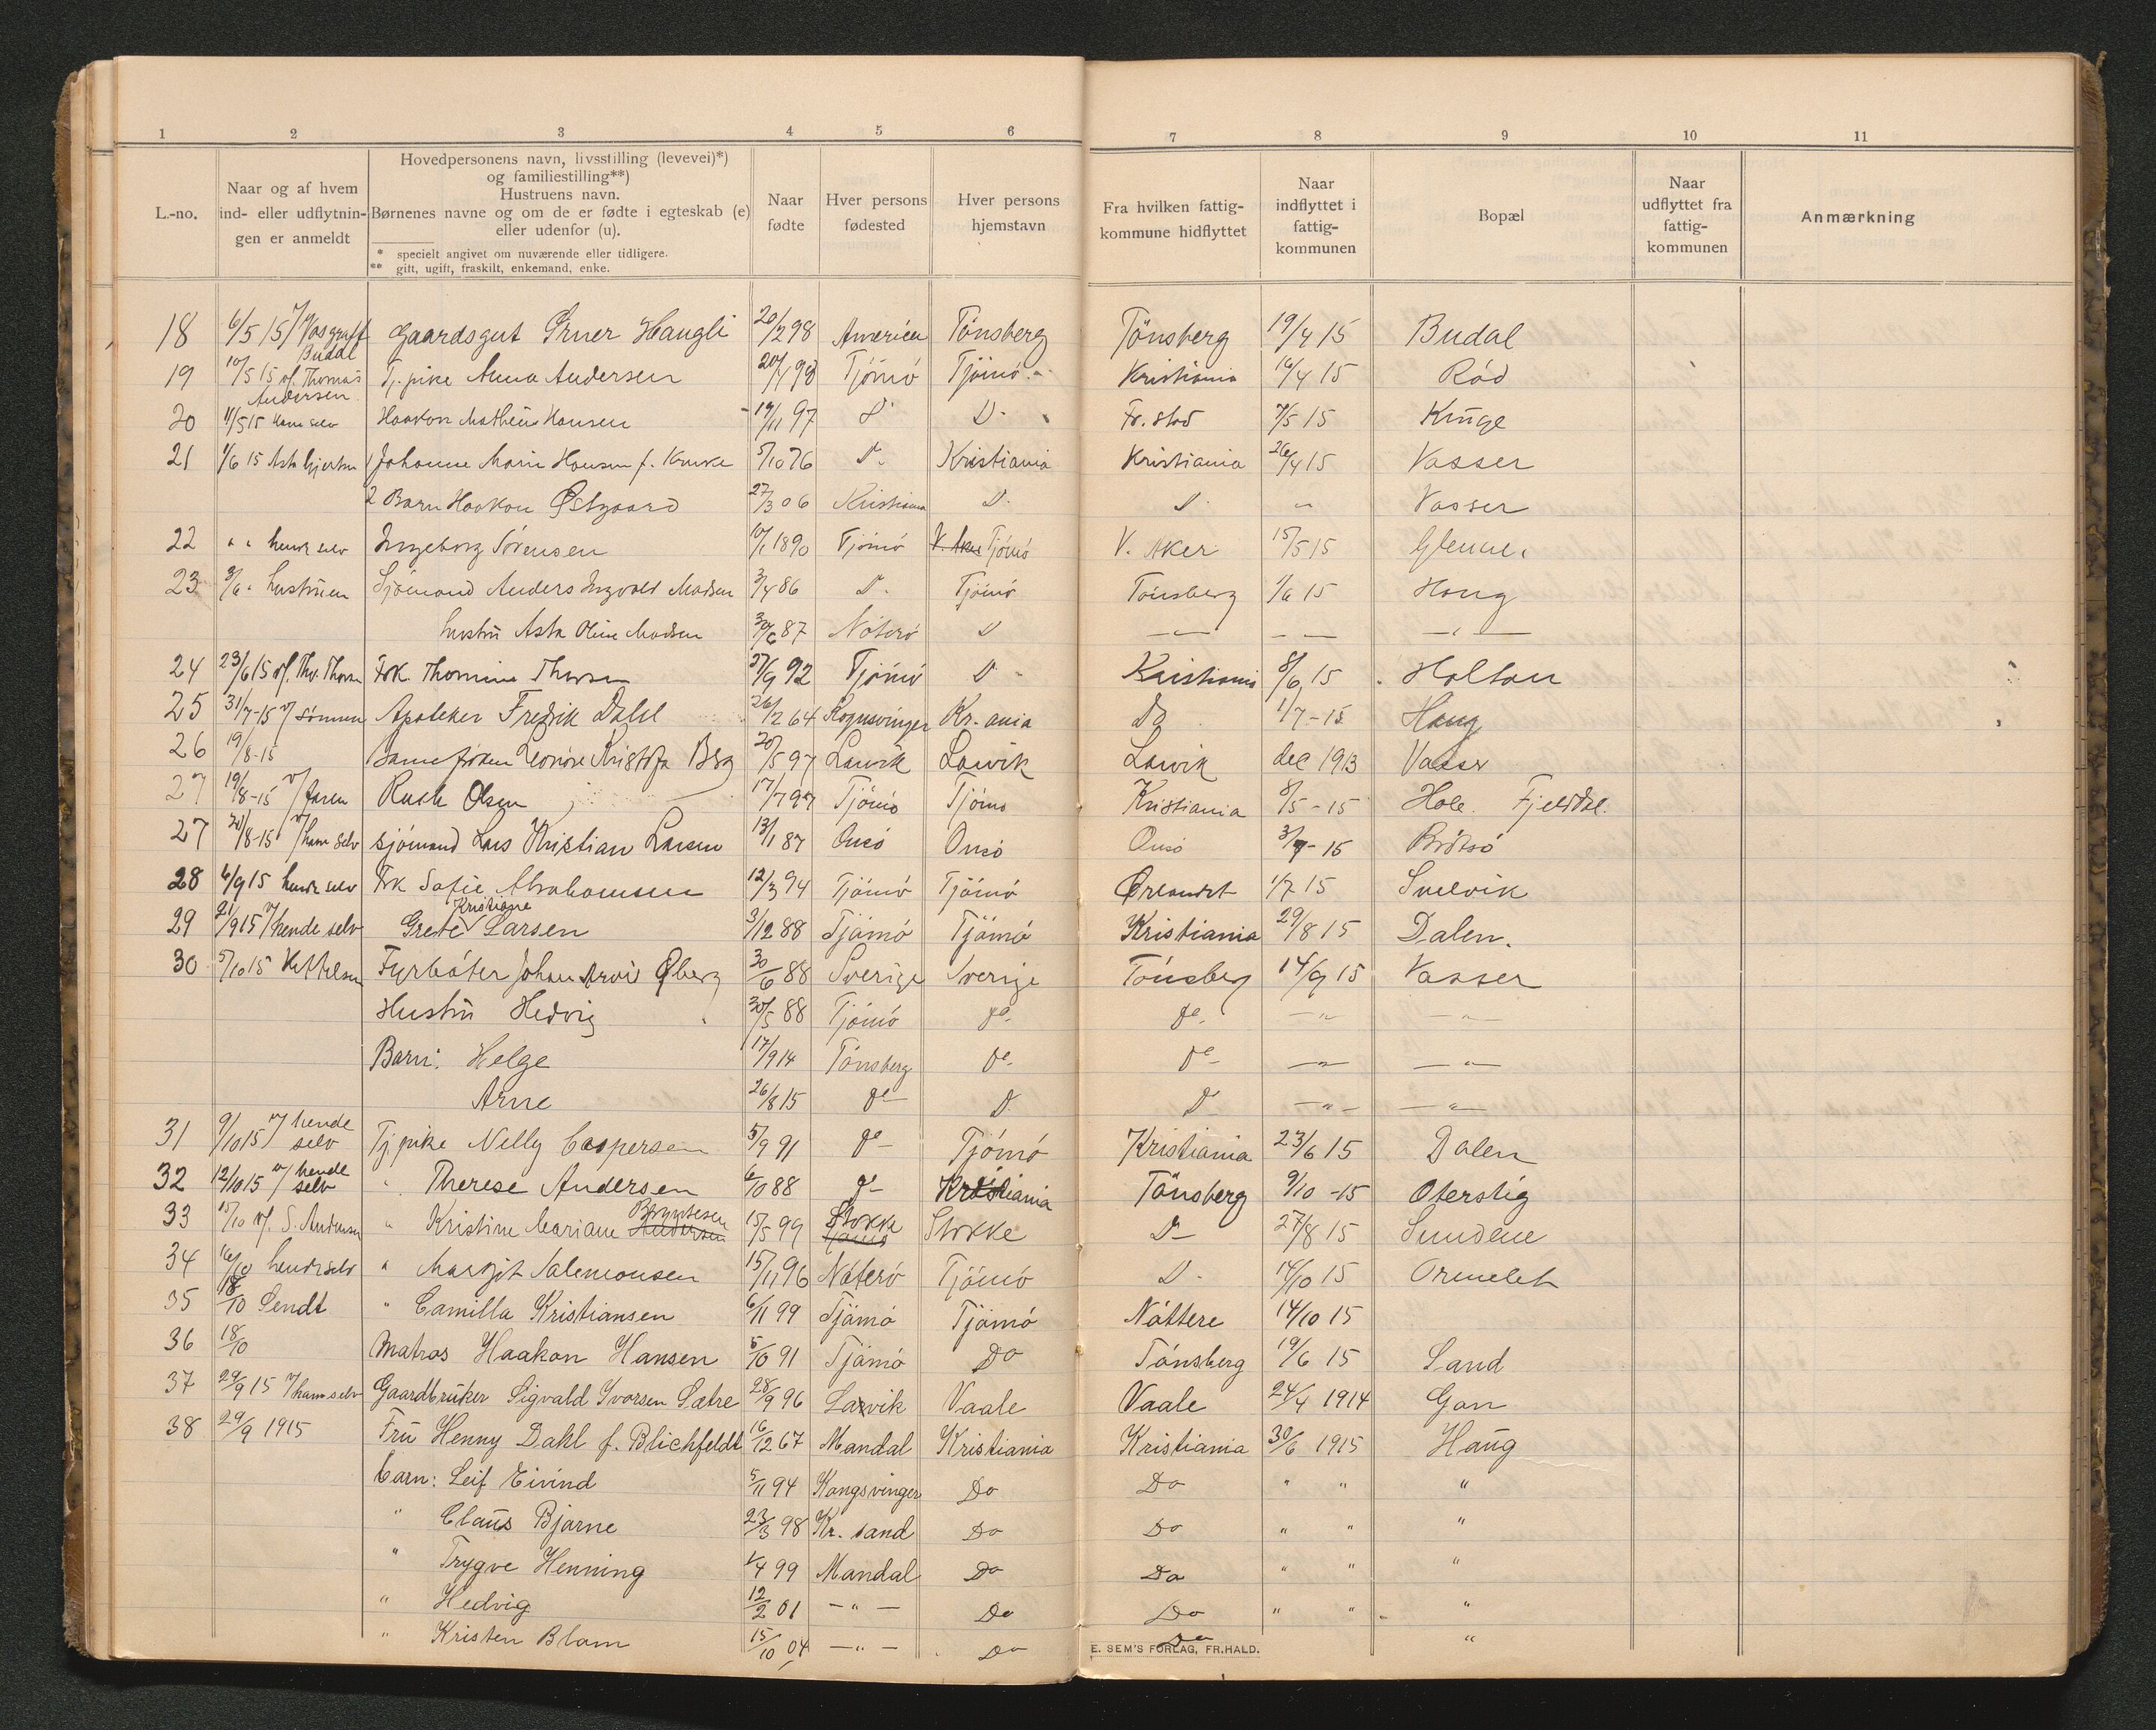 1 2 3 4 5 6 7 8 9 10 11
L.-no.
Naar og af hvem
ind- eller udflytnin-
gen er anmeldt
Hovedpersonens navn, livsstilling (levevei)*)
og familiestilling**)
Hustruens navn.
Børnenes navne og om de er fødte i egteskab (e)
eller udenfor (u).
* specielt angivet om nuværende eller tidligere.
** gift, ugift, fraskilt, enkemand, enke.
Naar
fødte
Hver persons
fødested
Hver persons
hjemstavn
Fra hvilken fattig-
kommune hidflyttet
Naar
indflyttet i
fattig-
kommunen
Bopæl
Naar
udflyttet fra
fattig-
kommunen
Anmærkning
18 6/5 15 Budal Gaardsgut Haugli 20/2 98 America Tønsberg Tønsberg 19/4 15 Budal
19 10/5 15 v/ Thomas Andersen Tj. pike Anna Andersen 20/4 98 Tjömö Tjömö Kristiania 16/4 15 Röd
20 11/5 15 ham selv Haakon Mathias Hansen 19/11 97 D D Fr. stad 7/5 15 Kruge
21 1/6 15 Johanne Marie Hansen f. 5/10 76 D. Kristiania Kristiania 26/4 15 Vasser
2 Barn Haakon Østgaard 27/3 06 Kristiania D. D. " Vasser
22 " " hende selv Ingeborg Sörensen 10/1 1890 Tjömö V. Aker Tjömö V. Aker 15/5 15 Glenne.
23 3/6 " hustruen Sjömand Anders Ingvald Madsen 3/4 86 D. Tjömö Tönsberg 1/6 15 Houg
hustru Asta Oline Madsen 30/6 87 Nöterö D — " — — — — " —
24 23/6 15 v/ Thv. Thorsen Frk. Thomine Thorsen 27/9 92 Tjömö D Kristiania 8/6 15 Holtan
25 31/7-15 v/ sønnen Apoteker Fredrik Dahl 26/2 64 Kongsvinger Kr.ania Do 1/7-15 Haug
26 19/8-15 Berg 20/5 97 Larvik Larvik Larvik dec 1913 Vasser
27 19/8-15 v/ faren Olsen 17/7 97 Tjömö Tjömö Kristiania 8/5-15 Hole. Fjeldal.
27 20/8-15 v/ ham selv sjömand Lars Kristian Larsen 13/1 87 Onsö Onsö Onsö 3/7-15 Bröttsö
28 6/9 15 hende selv Frk Sofie Abrahamsen 12/3 94 Tjömö Tjömö Ørlandet 1/7 15 Suelvik
29 21/9 15 v/ hende selv Grete Kristiane Larsen 3/12 88 Tjömö Tjömö Kristiania 29/8 15 Dalen.
30 5/10 15 Fyrböter Johan Arvid Øberg 30/6 88 Sverige Sverige Tönsberg 14/9 15 Vasser
Hustru Hedvig 30/5 88 Tjömö do. do. — " — — " —
Barn: Helge 17/9 14 Tönsberg do. do — " — — " —
Arne 26/8 15 do D. D — " — — " —
31 9/10 15 v/ hende selv Tj. pike Nelly Caspersen 5/9 91 do Tjömö Kristiania 23/6 15 Dalen
32 12/10 15 v/ hende selv " Therese Andersen 6/10 88 do Kristiania Tönsberg 9/10-15 Oterstig
33 15/10 v/ S. Andersen " Kristine Mariane Andersen Bryntesen 15/5 99 Tjömö Stokke Stokke D 27/8 15 Sundene
34 16/10 hende selv " Margit Salemonsen 15/11 96 Nöterö Tjömö D. 14/10 15 Ormelet
35 18/10 Sendt " Camilla Kristiansen 6/11 99 Tjömö Tjömö Nöttere 14/10 15
36 18/10 Matros Haakon Hansen 5/10 91 Tjömö Do Tönsberg 19/6 15 Sand
37 29/9 15 v/ ham selv Gaardbruker Sigvald Ivorsen Sætre 28/9 96 Larvik Vaale Vaale 24/4 1914 Gon
38 29/9 1915 Fru Henny Dahl f. Blichfeldt 16/12 67 Mandal Kristiania Kristiania 30/6 1915 Haug
barn: Leif Eivind 5/11 94 Kongsvinger Do Do " " "
" Claus Bjarne 23/3 98 Kr. sand Do Do " " "
" Trygve Henning 1/4 99 Mandal Do Do " " "
" Hedvig 12/2 01 — " — Do Do " " "
" Kristen Blom 15/10 04 — " — Do Do "
E. SEM'S FORLAG, FR.HALD.